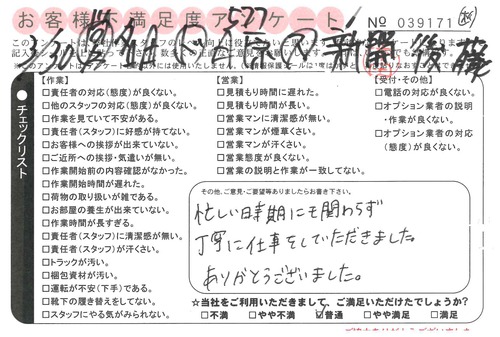 お客様不満足度アンケート
527
No 039171
チェックリスト
【作業】
□責任者の対応(態度)が良くない。
□他のスタッフの対応(態度)が良くない。
□作業を見ていて不安がある。
□責任者(スタッフ)に好感が持てない。
□お客様への挨拶が出来ていない。
□ご近所への挨拶・気遣いが無い。
□作業開始前の内容確認がなかった。
□作業開始時間が遅れた。
□荷物の取り扱いが雑である。
□お部屋の養生が出来ていない。
□作業時間が長すぎる。
□責任者(スタッフ)に清潔感が無い。
□責任者(スタッフ)が汗くさい。
□トラックが汚い。
□梱包資材が汚い。
□運転が不安(下手)である。
□靴下の履き替えをしてない。
□スタッフにやる気がみられない。
【営業】
□見積もり時間に遅れた。
□見積もり時間が長い。
□営業マンに清潔感が無い。
□営業マンが煙草くさい。
□営業マンが汗くさい。
□営業態度が良くない。
□営業の説明と作業が一致してない。
【受付・その他】
□電話の対応が良くない。
□オプション業者の説明
・作業が良くない。
□オプション業者の対応
(態度)が良くない。
その他、ご意見・ご要望等ありましたらお書き下さい。
忙しい時期にも関わらず
丁寧に仕事をしていただきました。
ありがとうございました。
☆当社をご利用いただきまして、ご満足いただけたでしょうか?
□不満 □やや不満 □普通 □やや満足 □満足